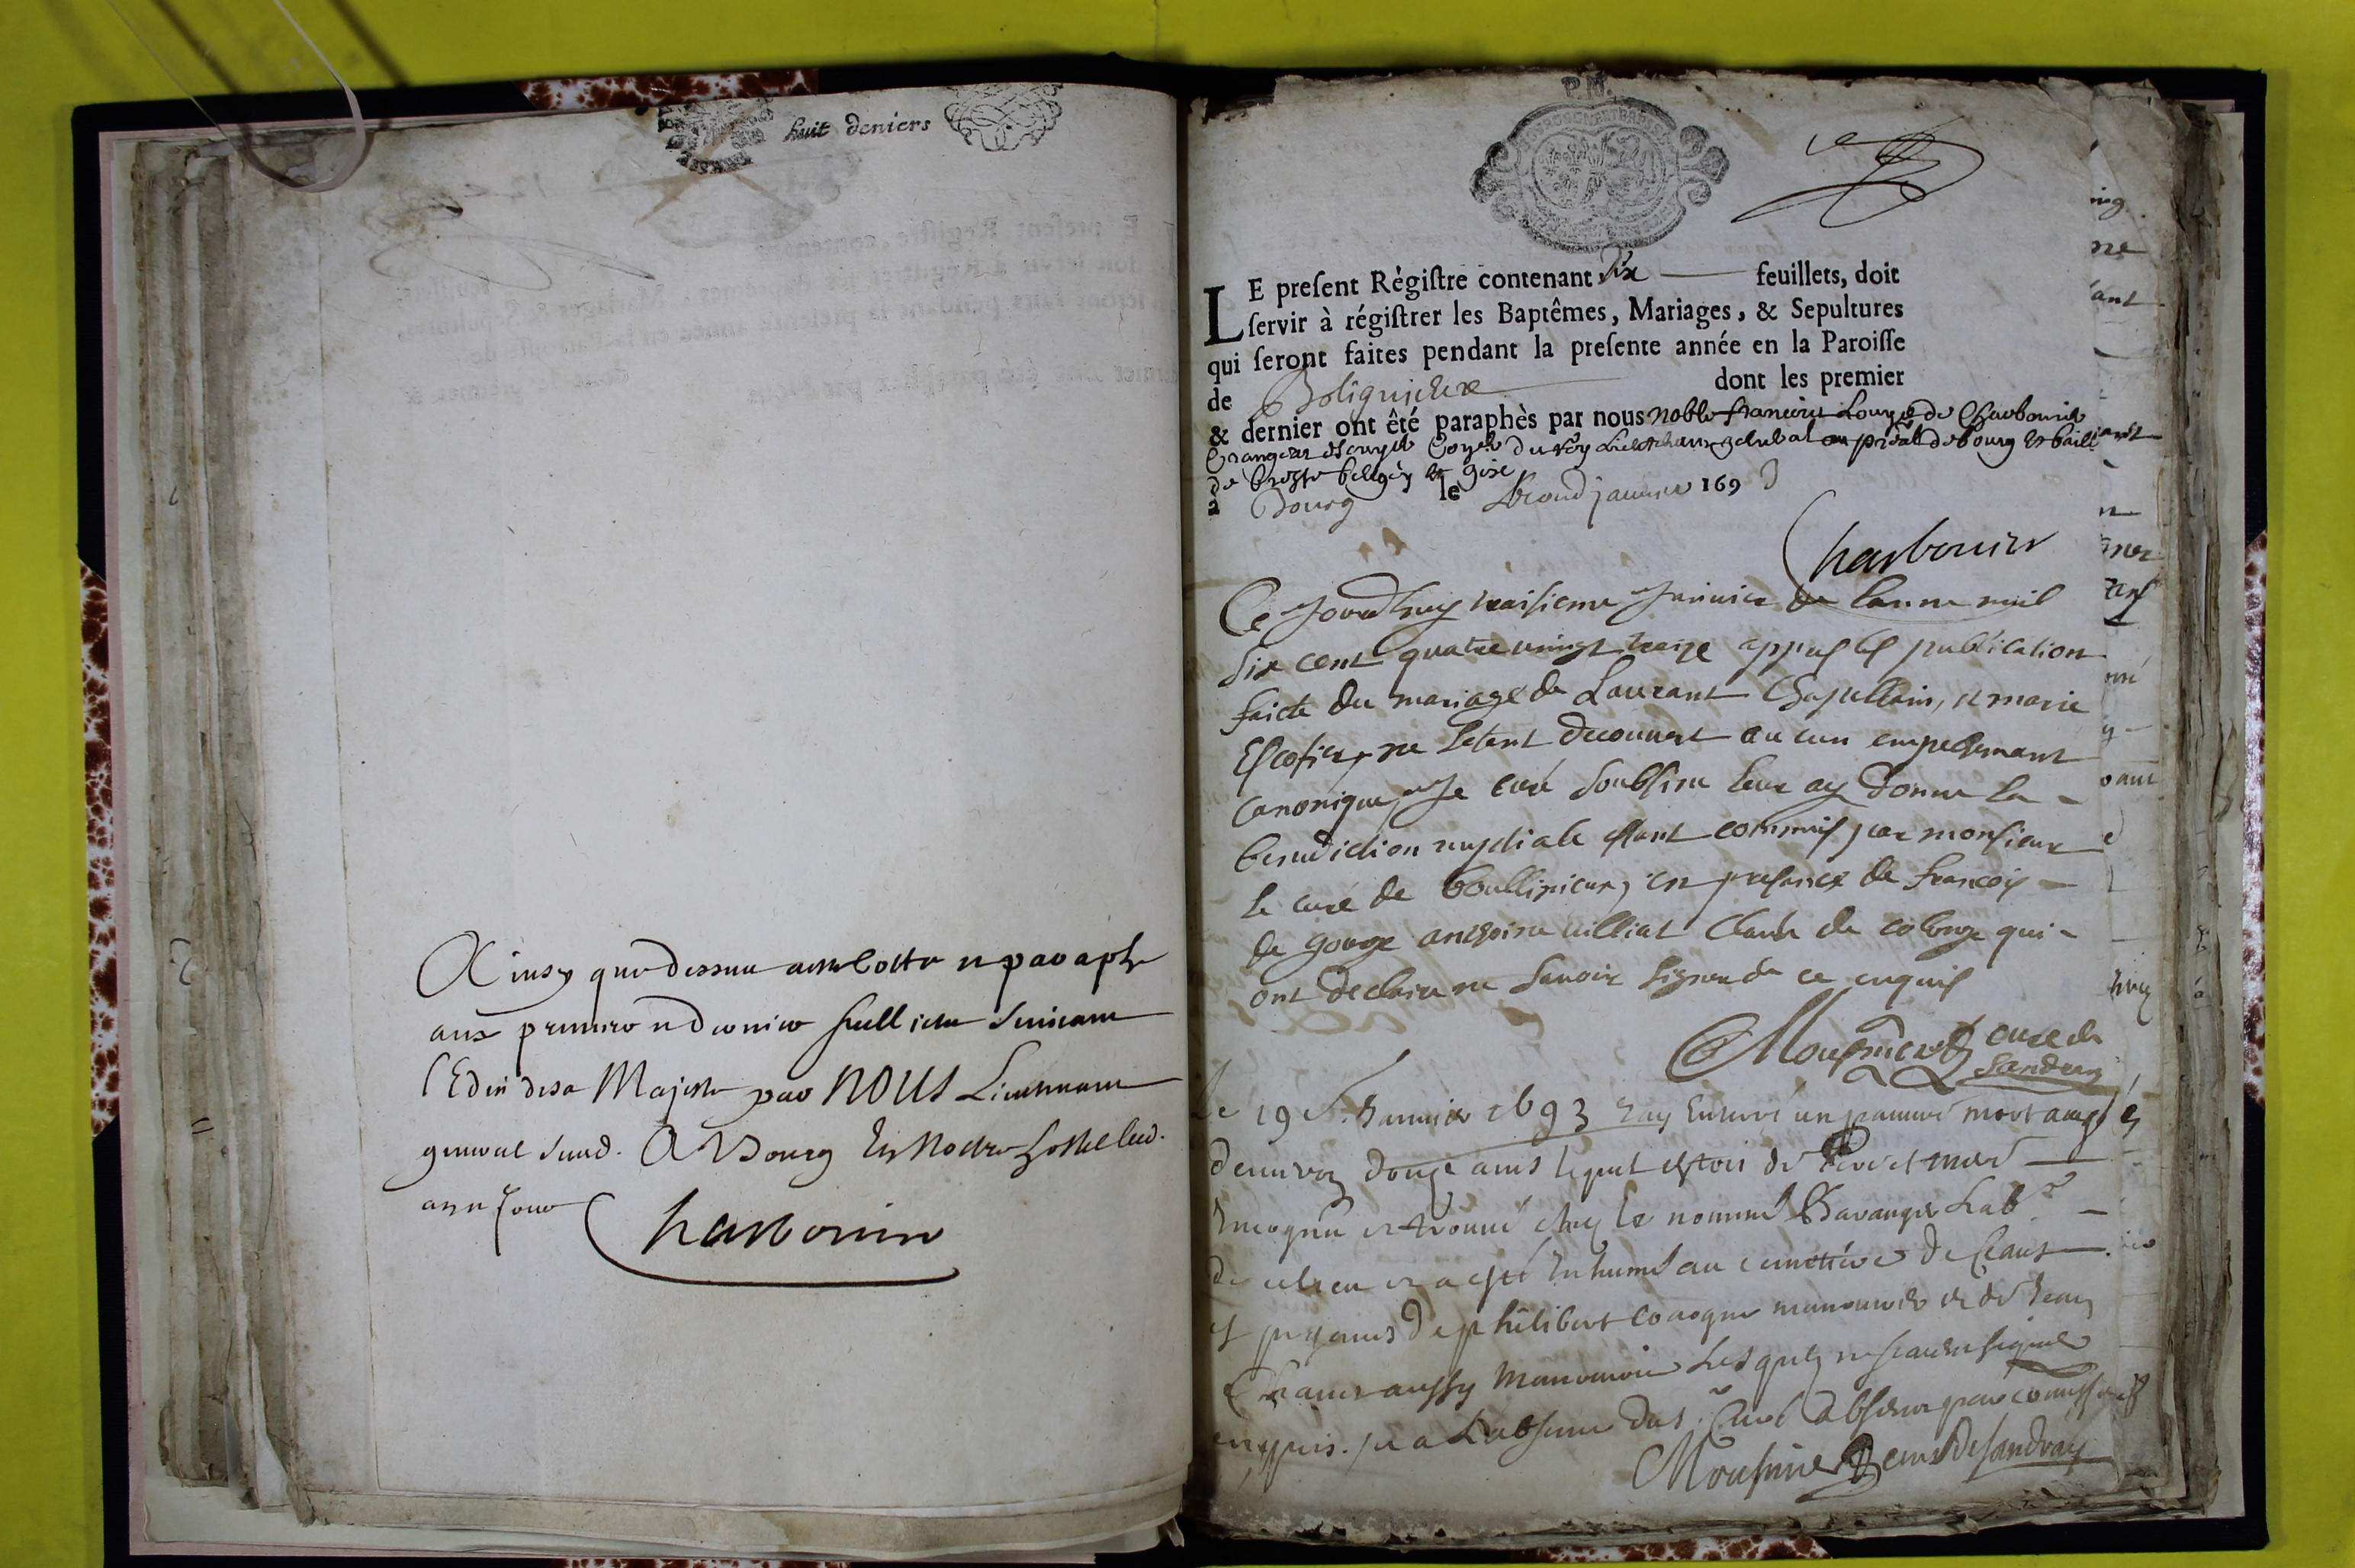 huit deniers
Ainsy que dessus a esté cotté et paraphé
aux premier et dernier feuillets suivant
l'Edit de sa Majesté par NOUS Lieutenant
general susd. A Bourg En Nostre hostel led.
an et jour
Charbonier
LE present Régistre contenant dix feuillets, doit
servir à régistrer les Baptêmes, Mariages, & Sepultures
qui seront faites pendant la presente année en la Paroisse
de Bolignieux dont les premier
& dernier ont êté paraphès par nous noble francois Louys de Charbonier
Crangeac Escuyer Con.er du Roy Lieutenant general au pr.al de bourg & baill
de bresse
a Bourg le second janvier 1693
Charbonier
Ce Jourdhuy traisieme Janvier de lanne mil
six cent quatre vingt traize appres les publication
faicte du mariage de Laurant Chapellain, et marie
Escofier, ne setent decouvert aucun empechemant
canonique, Je curé soubsine leur ay donne la
benediction nuptiale estant commis par monsieur
le curé de boullinieux, en presance de francois
de gouge anthoine villiat Claude de colonge qui
ont declaire ne savoir signer de ce enquis
Mousnier curé de
Sandran
Le 19 Janvier 1693 Jay Enterré un pauvre mort aagé
denviron douze ans lequel estoit de Pere et mere
Incognu et trouvé chez le nommé Lab.r
de ce lieu et a esté Inhumé au cimettiere de ceans
es presences de philibert manouvrier et de Jean
aussy manouvrier Lesquels ne scavent signer
enquis. Je a Labsence du s.r Curé absent par commission
Mousnier Curé de Sandran